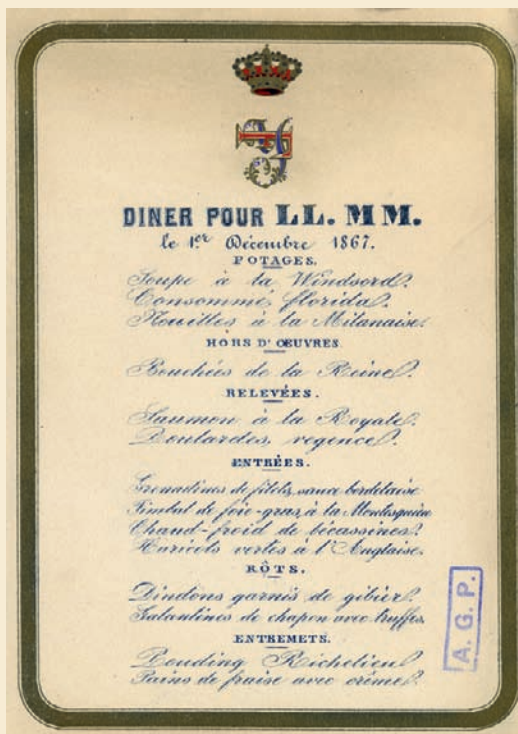 DINER POUR LL. MM.
le 1.er Décembre 1867.
POTAGES.
Soupe à la Windsord.
Consommé, florida.
Nouilles à la Milanaise.
HORS D'ŒUVRES
Bouchées de la Reine.
RELEVÉES.
Saumon à la Royale.
Poulardes, regence.
ENTRÉES.
Grenadines de filets, sauce bordelaise
Timbal de foie-gras, à la Montesquieu
Chaud-froid de bécassines.
Haricots vertes à l'Anglaise.
RÔTS.
Dindons garnis de gibier.
Galantines de chapon avec truffes.
ENTREMETS.
Pouding Richelieu.
Pains de fraise avec crême.
A. G. P.